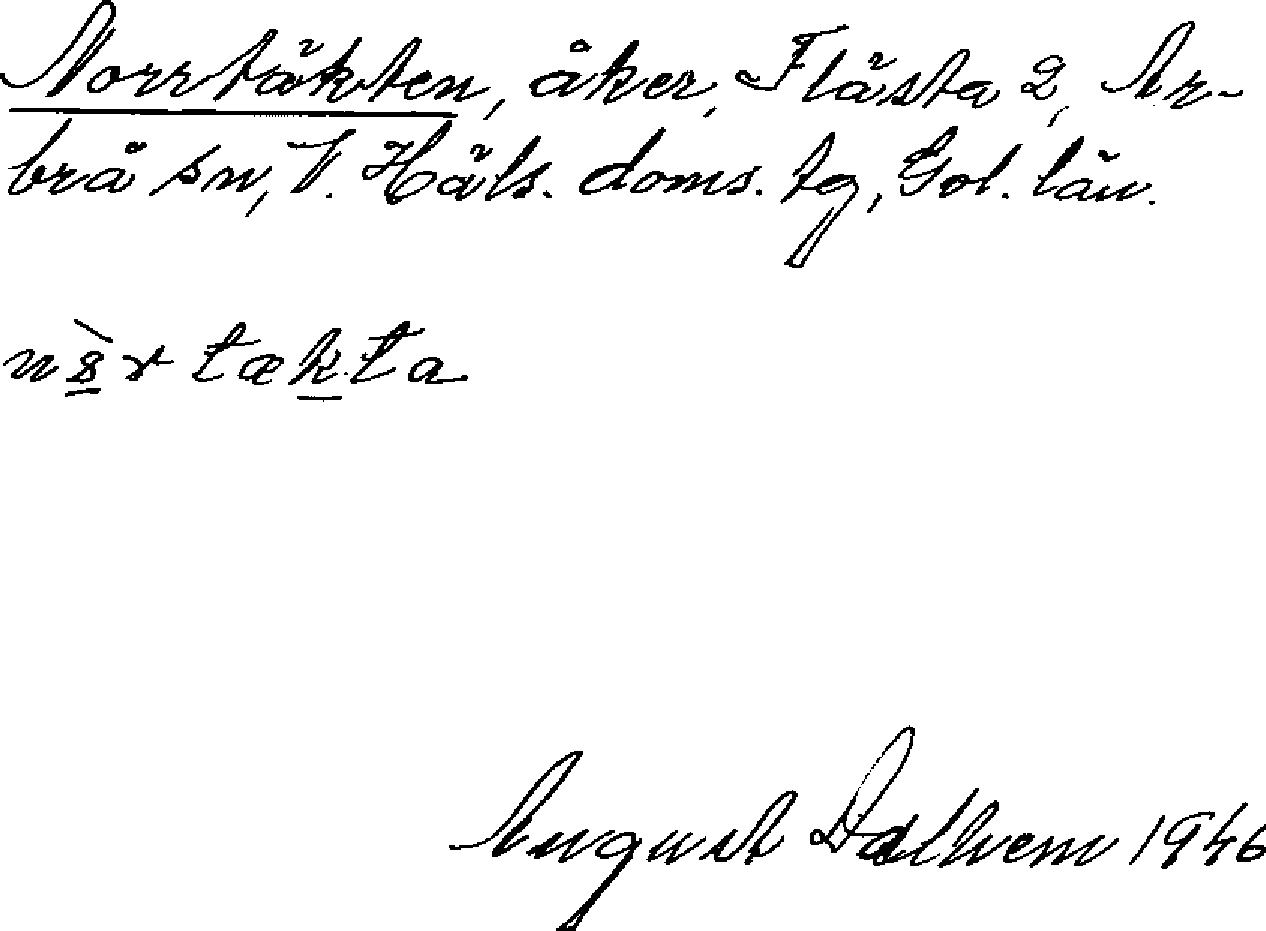 Norrtäkten, åker, Flästa 2, Ar-
brå sn, V. Häls. doms. tg, Gvl. län.
tækta
August Dalhem 1946